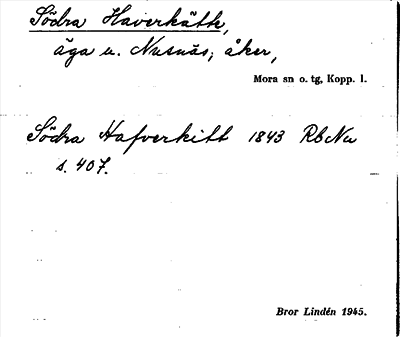 Södra Haverkätte,
äga u. Nusnäs, åker,
Mora sn o. tg, Kopp. l.
Södra Hafverkitt 1843 RbNu
s. 407.
Bror Lindén 1945.